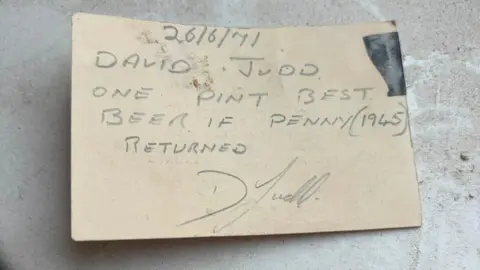 26/6/71
DAVID JUDD
ONE PINT BEST
BEER IF PENNY (1945)
RETURNED
D Judd.